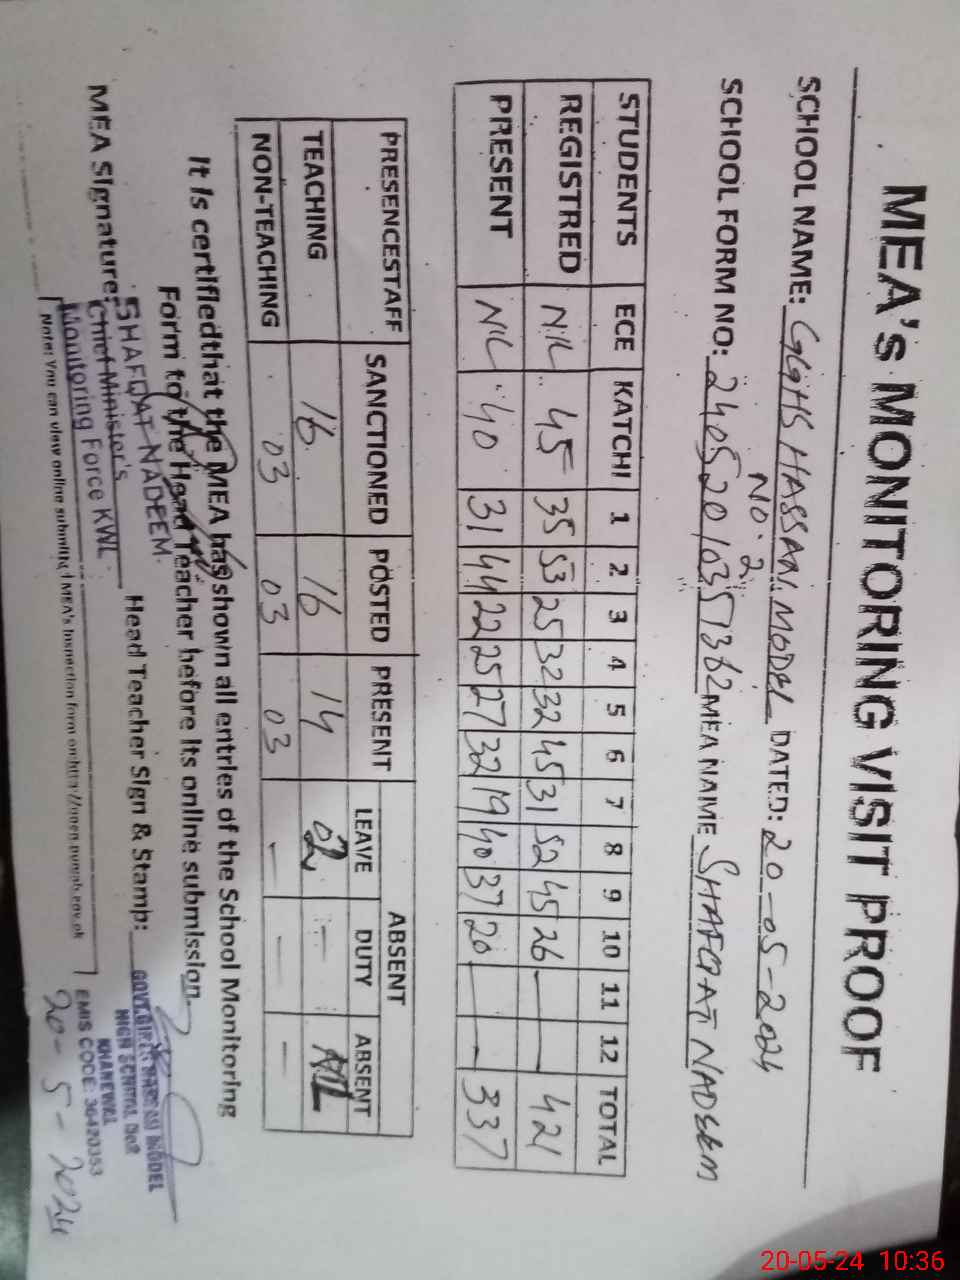 MEA'S MONITORING VISIT PROOF
SCHOOL NAME: GGHS HASSAN MODEL DATED: 20-05-2024
NO. 2
SCHOOL FORM NO: MEA NAME SHAFQAT NADEEM
STUDENTS ECE KATCHI 1 2 3 4 5 6 7 8 9 10 11 12 TOTAL
REGISTRED NIL 45 35 53 25 32 32 45 31 52 45 26 — — 421
PRESENT NIL 40 31 44 22 25 27 32 19 40 37 20 — — 337
PRESENCESTAFF SANCTIONED POSTED PRESENT ABSENT
LEAVE DUTY ABSENT
TEACHING 16 16 14 02 — NIL
NON-TEACHING 03 03 03 — — —
It is certifiedthat the MEA has shown all entries of the School Monitoring
Form to the Head Teacher before its online submission.
MEA Signature: Head Teacher Sign & Stamp:
SHAFQAT NADEEM
Chief Minister's
Monitoring Force KWL
MODEL
KHANEWAL
EMIS CODE: 36420353
20-5-2024
Note: You can view online submitted MEA's Inspection form on
20-05-24 10:36